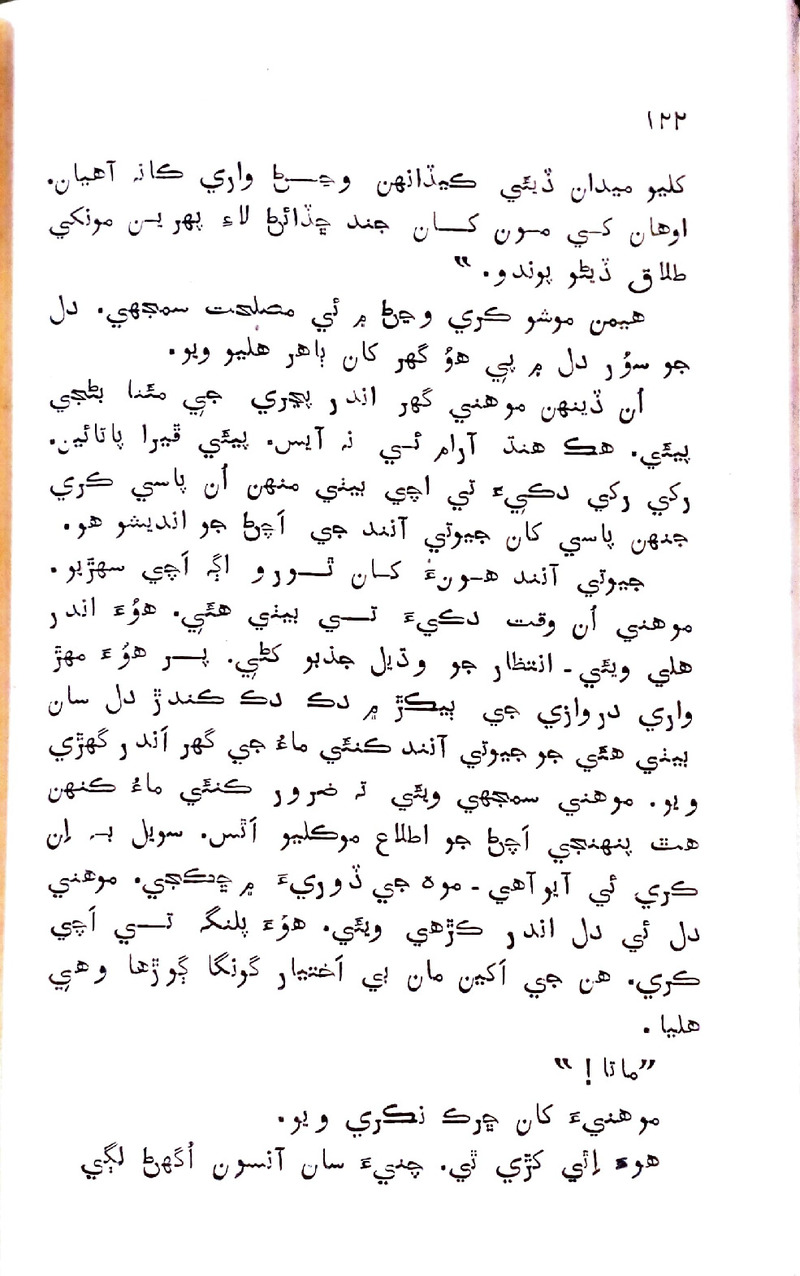 ۱۲۲
کليو ميدان ڏيئي ڪيڏانهن وڃڻ واري ڪانہ آهيان.
اوهان کي مون کان جند ڇڏائڻ لاءِ پهرين مونکي
طلاق ڏيڻو پوندو. “
هيمن موشو ڪري وڃڻ ۾ ئي مصلحت سمجهي. دل
جو سوُر دل ۾ پي هوُ گهر کان ٻاهر هليو ويو.
اُن ڏينهن موهني گهر اندر پڃري جي مئنا بڻجي
پيئي. هڪ هنڌ آرام ئي نہ آيس. پيئي ڦيرا پاتائين.
رکي رکي دڪيءَ تي اچي بيٺي منهن اُن پاسي ڪري
جنهن پاسي کان جيوتي آنند جي اَچڻ جو انديشو هو.
جيوتي آنند هونءَ کان ٿورو اڳہ اَچي سهڙيو.
موهني اُن وقت دڪيءَ تي بيٺي هئي. هوُءَ اندر
هلي ويئي۔ انتظار جو وڌيل جذبو کڻي. پر هوُءَ مهڙ
واري دروازي جي ٻيڪڙ ۾ دڪ دڪ ڪندڙ دل سان
بيٺي هئي جو جيوتي آنند ڪنئي ماءُ جي گهر اَندر گهڙي
ويو. موهني سمجهي ويئي تہ ضرور ڪنئي ماءُ ڪنهن
هٿ پنهنجي اَچڻ جو اطلاع موڪليو اَٿس. سويل بہ اِن
ڪري ئي آيو آهي۔ موه جي ڏوريءَ ۾ ڇڪجي. موهني
دل ئي دل اندر ڪڙهي ويئي. هوُءَ پلنگہ تي اَچي
ڪري. هن جي اَکين مان بي اَختيار گونگا ڳوڙها وهي
هليا.
”ماتا! “
موهنيءَ کان ڇرڪ نڪري ويو.
هوءَ اِٿي کڙي ٿي. چنيءَ سان آنسون اُگهڻ لڳي